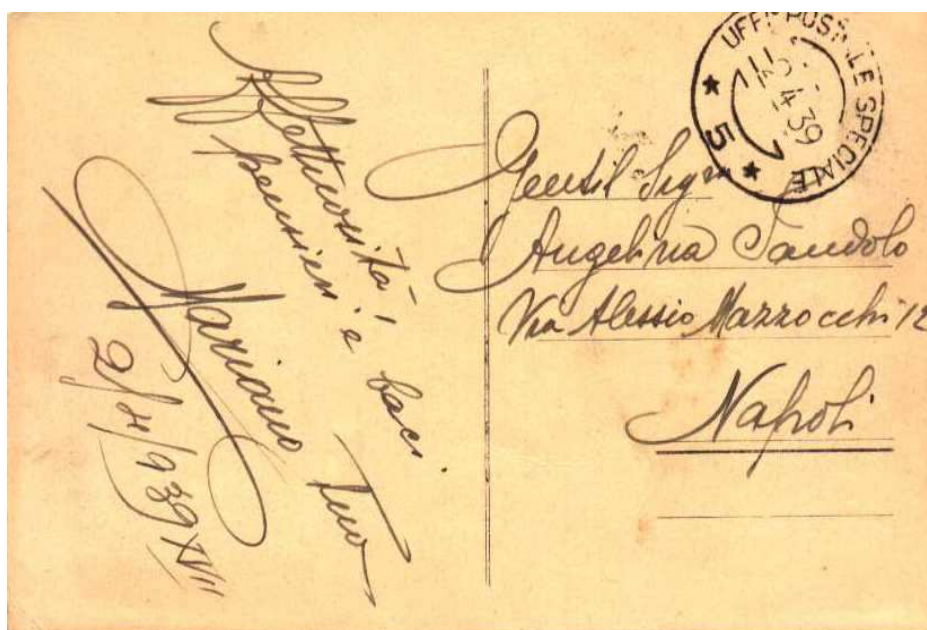 Affettuosità,
pensieri e baci.
Tuo
Mariano
2/4/939 XVII
UFF. POSTALE SPECIALE
2.4.39
* 5 *
Gentil Sigra
Angelina Sandolo
Via Alessio Mazzocchi 12
Napoli